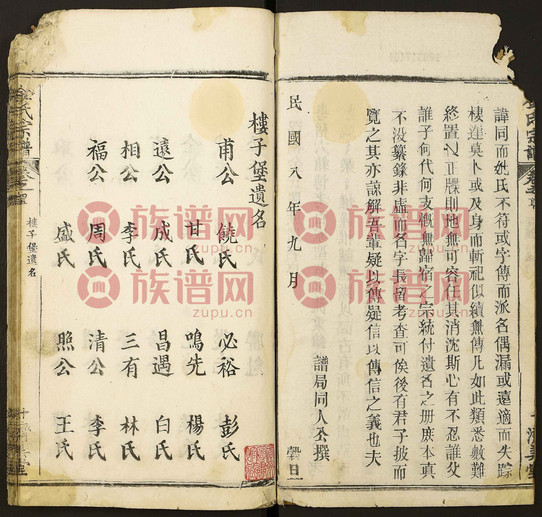 諱同而姓氏不符或字傳而派名偶漏或遠適而失踪
棲遑莫卜或及身而斬祀似續無傳凡如此類悉數難
終置之正牒則地無可容任其消沈斯心有不忍誰父
誰子何代何支慨無歸宿之宗統付遺名之冊庶本真
不没纂錄非虛而名字長留考查可俟後有君子披而
覽之其亦諒解吾輩疑以傳疑信以傳信之義也夫
民國八年九月
譜局同人公撰
樓子堡遺名
甫公 饒氏 必裕 彭氏
甘氏 鳴先 楊氏
遠公 成氏 昌遇 白氏
相公 李氏 三有 林氏
福公 周氏 清公 李氏
盛氏 照公 王氏
氏宗譜
樓子堡遺名
族谱网
zupu.cn